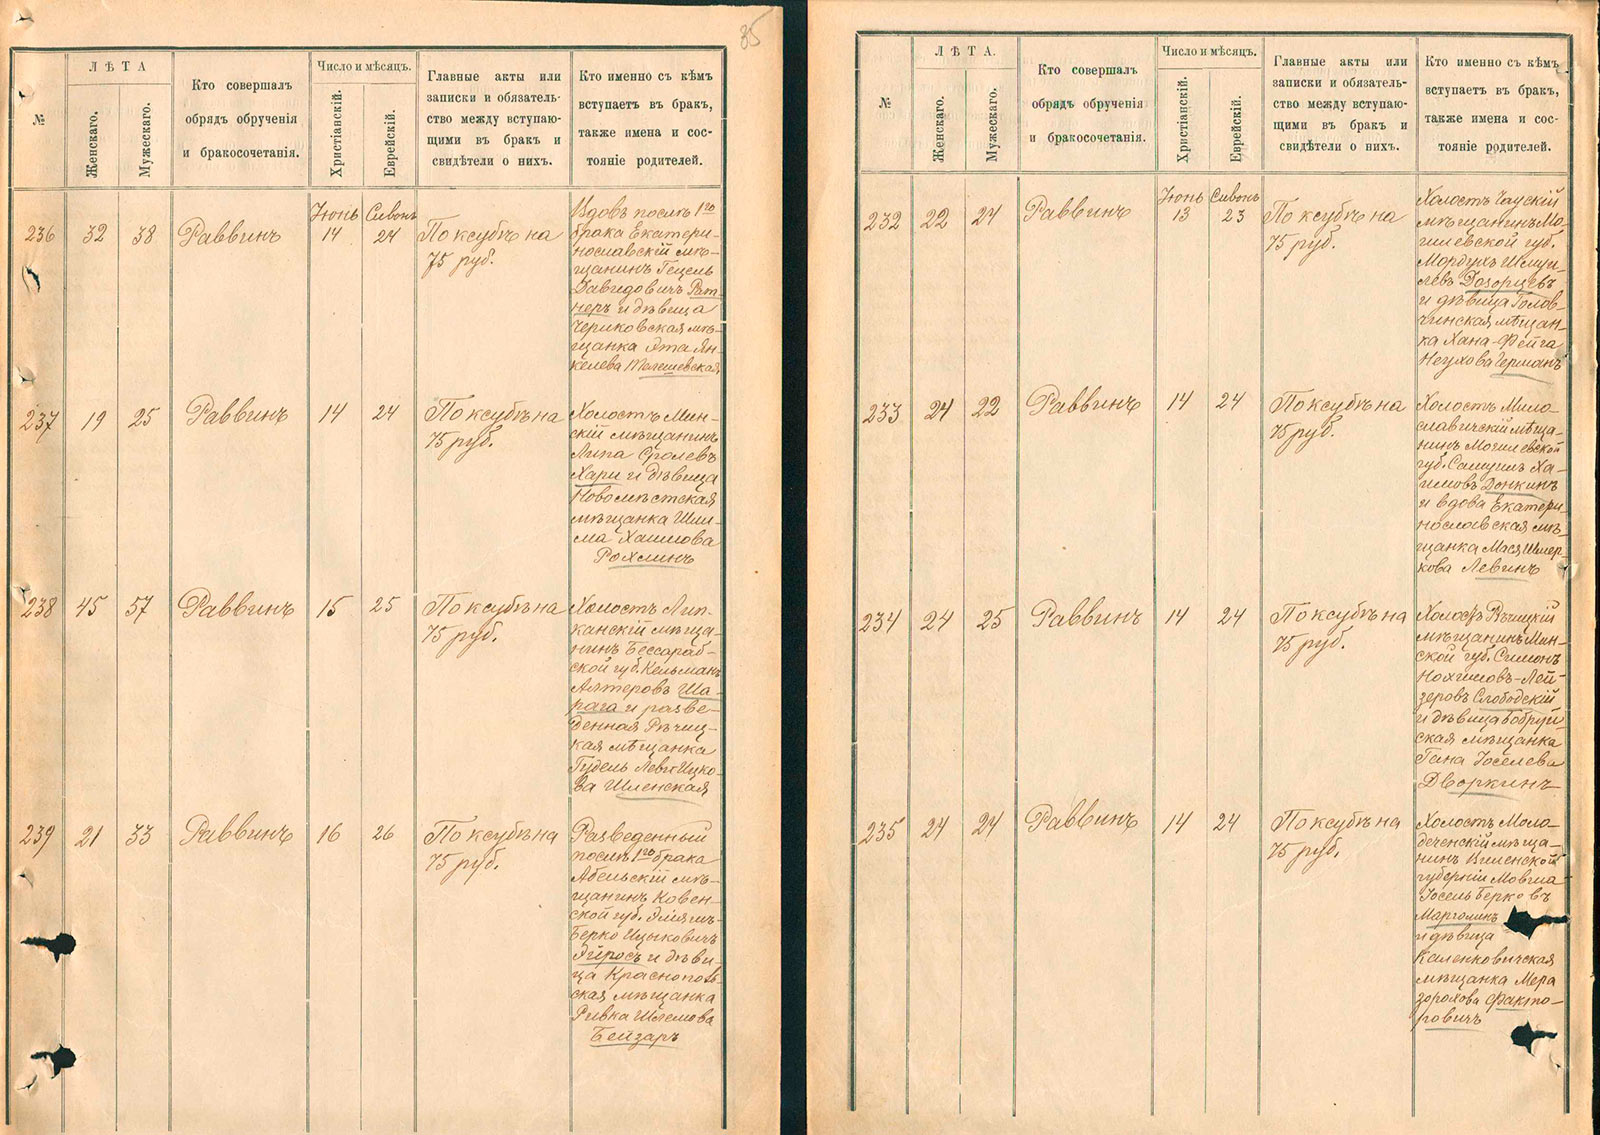 35
№
ЛѢТА
Женскаго.
Мужескаго.
Кто совершалъ
обрядъ обрученія
и бракосочетанія.
Число и мѣсяцъ.
Христіанскій.
Еврейскій.
Главные акты или
записки и обязатель-
ство между вступаю-
щими въ бракъ и
свидѣтели о нихъ.
Кто именно съ кѣмъ
вступаетъ въ бракъ,
также имена и сос-
тояніе родителей.
236
32
38
Раввинъ
Іюнь
14
Сивонъ
24
По ксубѣ на
75 руб.
Вдовъ послѣ 1го
брака Екатери-
нославскій мѣ-
щанинъ Гецель
Давидовичъ Рат-
неръ и дѣвица
Чериковская мѣ-
щанка Эта Ян-
келева
237
19
25
Раввинъ
14
24
По ксубѣ на
75 руб.
Холостъ Мин-
скій мѣщанинъ
Липа Сролевъ
Хари и дѣвица
Новомѣстская
мѣщанка Шли-
ма Хаимова
Рохлинъ
238
45
57
Раввинъ
15
25
По ксубѣ на
75 руб.
Холостъ Лип-
канскій мѣща-
нинъ Бессараб-
ской губ. Кельманъ
Алтеровъ Ша-
рага и разве-
денная Рѣчиц-
кая мѣщанка
Гудель Леви Ицко-
ва Шленская
239
21
33
Раввинъ
16
26
По ксубѣ на
75 руб.
Разведенный
послѣ 1го брака
Абельскій мѣ-
щанинъ Ковен-
ской губ. Эліяшъ-
Берко Ицыковичъ
Эйросъ и дѣви-
ца Краснополь-
ская мѣщанка
Ривка Шлемова
Бейзаръ
№
ЛѢТА.
Женскаго.
Мужескаго.
Кто совершалъ
обрядъ обрученія
и бракосочетанія.
Число и мѣсяцъ.
Христіанскій.
Еврейскій.
Главные акты или
записки и обязатель-
ство между вступаю-
щими въ бракъ и
свидѣтели о нихъ.
Кто именно съ кѣмъ
вступаетъ въ бракъ,
также имена и сос-
тояніе родителей.
232
22
24
Раввинъ
Іюнь
13
Сивонъ
23
По ксубѣ на
75 руб.
Холостъ Чаускій
мѣщанинъ Мо-
гилевской губ.
Мордухъ Шмуи-
левъ Дозорцевъ
и дѣвица Голов-
чинская мѣщан-
ка Хана-Фейга
Неухова Германъ
233
24
22
Раввинъ
14
24
По ксубѣ на
75 руб.
Холостъ Мило-
славичскій мѣща-
нинъ Могилевской
губ. Самуилъ Ха-
имовъ Донкинъ
и вдова Екатери-
нославская мѣ-
щанка Мася Шмер-
кова Левинъ
234
24
25
Раввинъ
14
24
По ксубѣ на
75 руб.
Холостъ Рѣчицкій
мѣщанинъ Мин-
ской губ. Симонъ
Нохимовъ-Лей-
зеровъ Слободскій
и дѣвица Бобруй-
ская мѣщанка
Гана Іоселева
Дворкинъ
235
24
24
Раввинъ
14
24
По ксубѣ на
75 руб.
Холостъ Моло-
деченскій мѣща-
нинъ Виленской
губерніи Мовша
Іосель Берковъ
Марголинъ
и дѣвица
Каленковичская
мѣщанка Мера
Зорохова Факто-
ровичъ